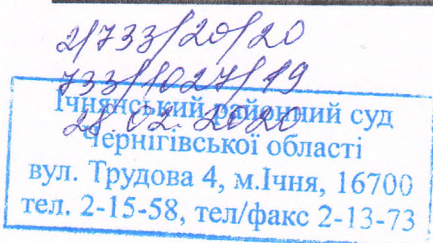 2/733/20/20
733/1027/19
Ічнянський районний суд
28.02.2020
Чернігівської області
вул. Трудова 4, м.Ічня, 16700
тел. 2-15-58, тел/факс 2-13-73